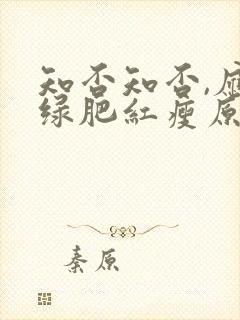 知否知否,应
绿肥红瘦原
秦原